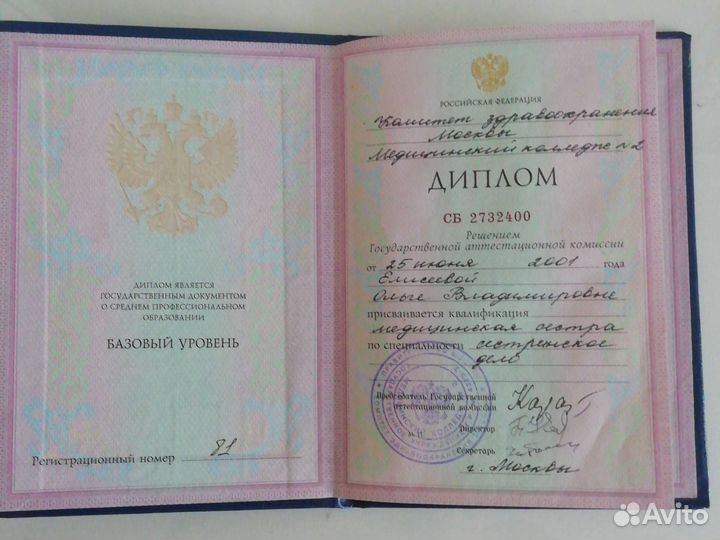 ДИПЛОМ ЯВЛЯЕТСЯ
ГОСУДАРСТВЕННЫМ ДОКУМЕНТОМ
О СРЕДНЕМ ПРОФЕССИОНАЛЬНОМ
ОБРАЗОВАНИИ
БАЗОВЫЙ УРОВЕНЬ
Регистрационный номер 81
РОССИЙСКАЯ ФЕДЕРАЦИЯ
Комитет здравоохранения
Москвы
Медицинский колледж №2
ДИПЛОМ
СБ 2732400
Решением
Государственной аттестационной комиссии
от 25 июня 2001 года
Елисеевой
Ольге Владимировне
присваивается квалификация
медицинская сестра
по специальности сестринское
дело
Председатель Государственной
аттестационной комиссии
М.П. Директор
Секретарь
г. Москвы
Avito